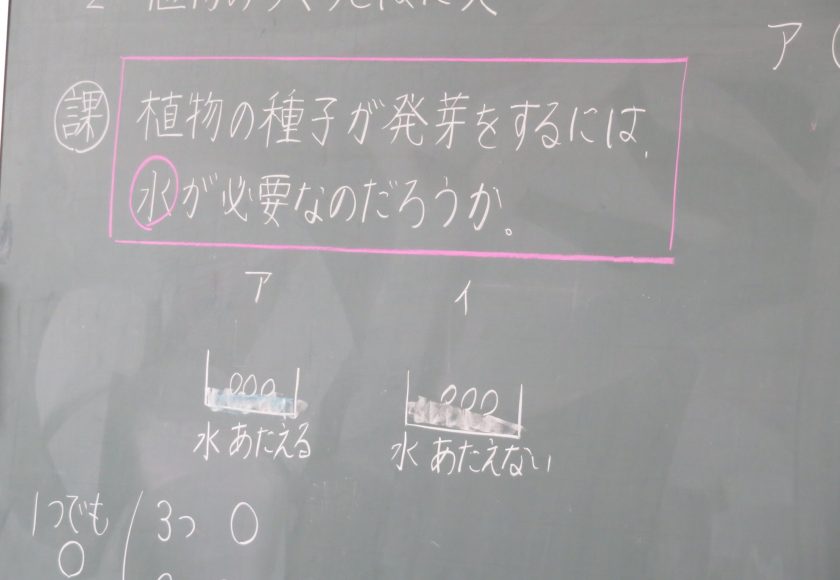 ア
課
植物の種子が発芽をするには、
水が必要なのだろうか。
ア
イ
水 あたえる
水 あたえない
1つでも
0
3つ 0